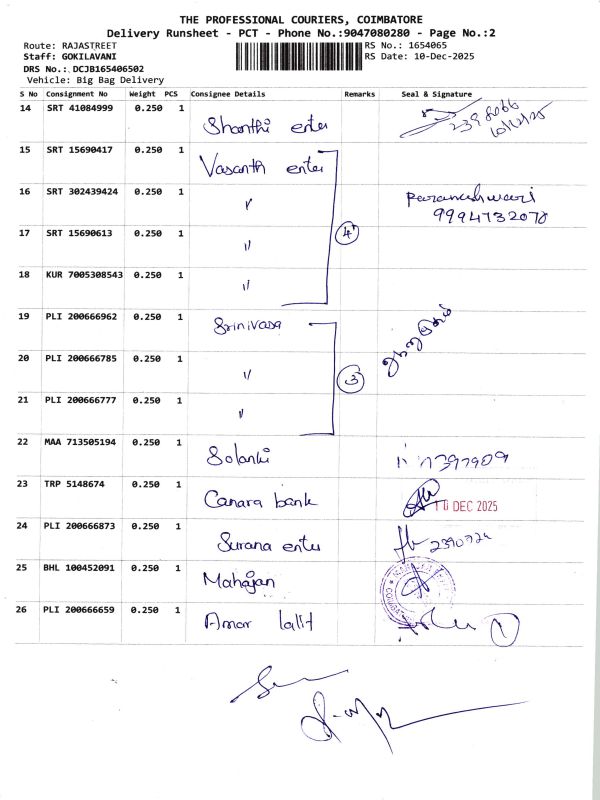 THE PROFESSIONAL COURIERS, COIMBATORE
Delivery Runsheet - PCT - Phone No.:9047080280 - Page No.:2
Route: RAJASTREET
RS No.: 1654065
Staff: GOKILAVANI
RS Date: 10-Dec-2025
DRS No.: DCJB165406502
Vehicle: Big Bag Delivery
S No Consignment No Weight PCS Consignee Details Remarks Seal & Signature
14 SRT 41084999 0.250 1 Shanthi enter
10/12/25
15 SRT 15690417 0.250 1 Vasanth enter
16 SRT 302439424 0.250 1 〃 Parameshwari
9994732070
17 SRT 15690613 0.250 1 〃 4
18 KUR 7005308543 0.250 1 〃
19 PLI 200666962 0.250 1 Srinivasa
20 PLI 200666785 0.250 1 〃 3
21 PLI 200666777 0.250 1 〃
22 MAA 713505194 0.250 1 Solanki
23 TRP 5148674 0.250 1 Canara bank 10 DEC 2025
24 PLI 200666873 0.250 1 Surana enter
25 BHL 100452091 0.250 1 Mahajan
26 PLI 200666659 0.250 1 Amar lalit 1